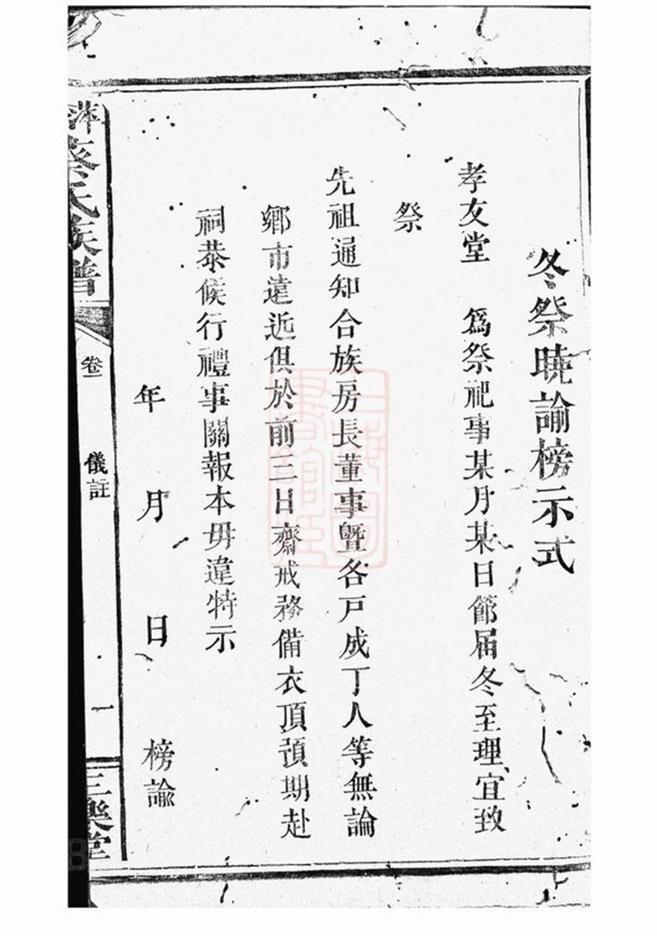 冬祭曉諭榜示式
孝友堂 爲祭祀事某月某日節届冬至理宜致
祭
先祖通知合族房長董事暨各戸成丁人等無論
鄉市遠近俱於前三日齋戒務備衣頂預期赴
祠恭候行禮事關報本毋違特示
年 月 日 榜諭
萍蔡氏族譜 卷一 儀註 一 三樂堂
上海圖書館藏